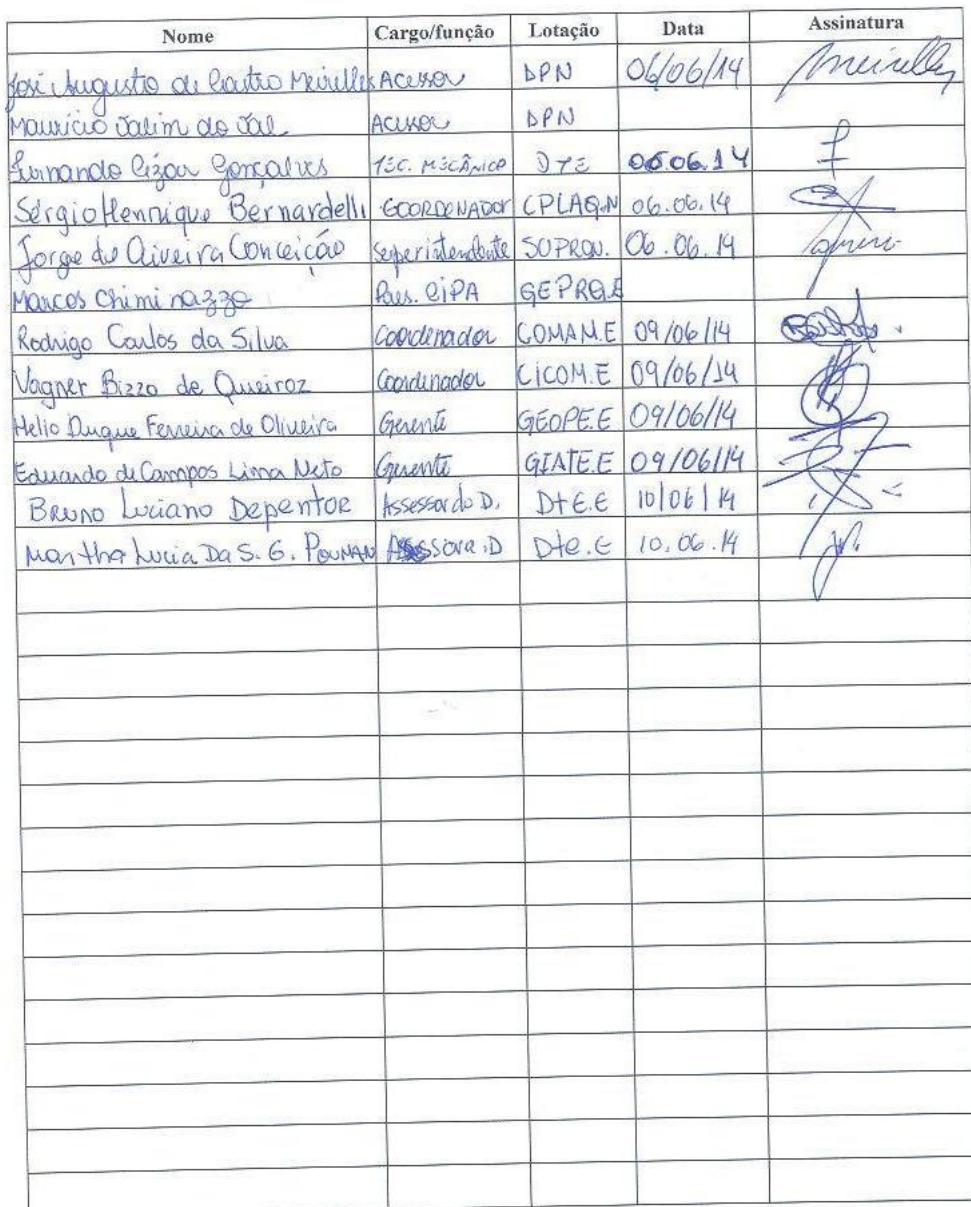 Nome Cargo/função Lotação Data Assinatura
José Augusto de Castro Meirelles Acessor DPN 06/06/14 Meirelles
Mauricio Jalim do Val Acessor DPN
Fernando Cizar Gonçalves TÉC. MECÂNICO DTE 06.06.14
Sérgio Henrique Bernardelli COORDENADOR CPLAQ.N 06.06.14
Jorge de Oliveira Conceição Superintendente SUPRQN. 06.06.14
Marcos Chiminazzo Pres. CIPA GEPRQ.E
Rodrigo Carlos da Silva Coordenador COMAM.E 09/06/14
Vagner Bizzo de Queiroz Coordenador CICOM.E 09/06/14
Helio Duque Ferreira de Oliveira Gerente GEOPE.E 09/06/14
Eduardo de Campos Lima Neto Gerente GIATE.E 09/06/14
BRUNO Luciano Depentor Assessor do D. DtE.E 10/06/14
Martha Lucia Da S. G. Assessora.D Dte.E 10.06.14